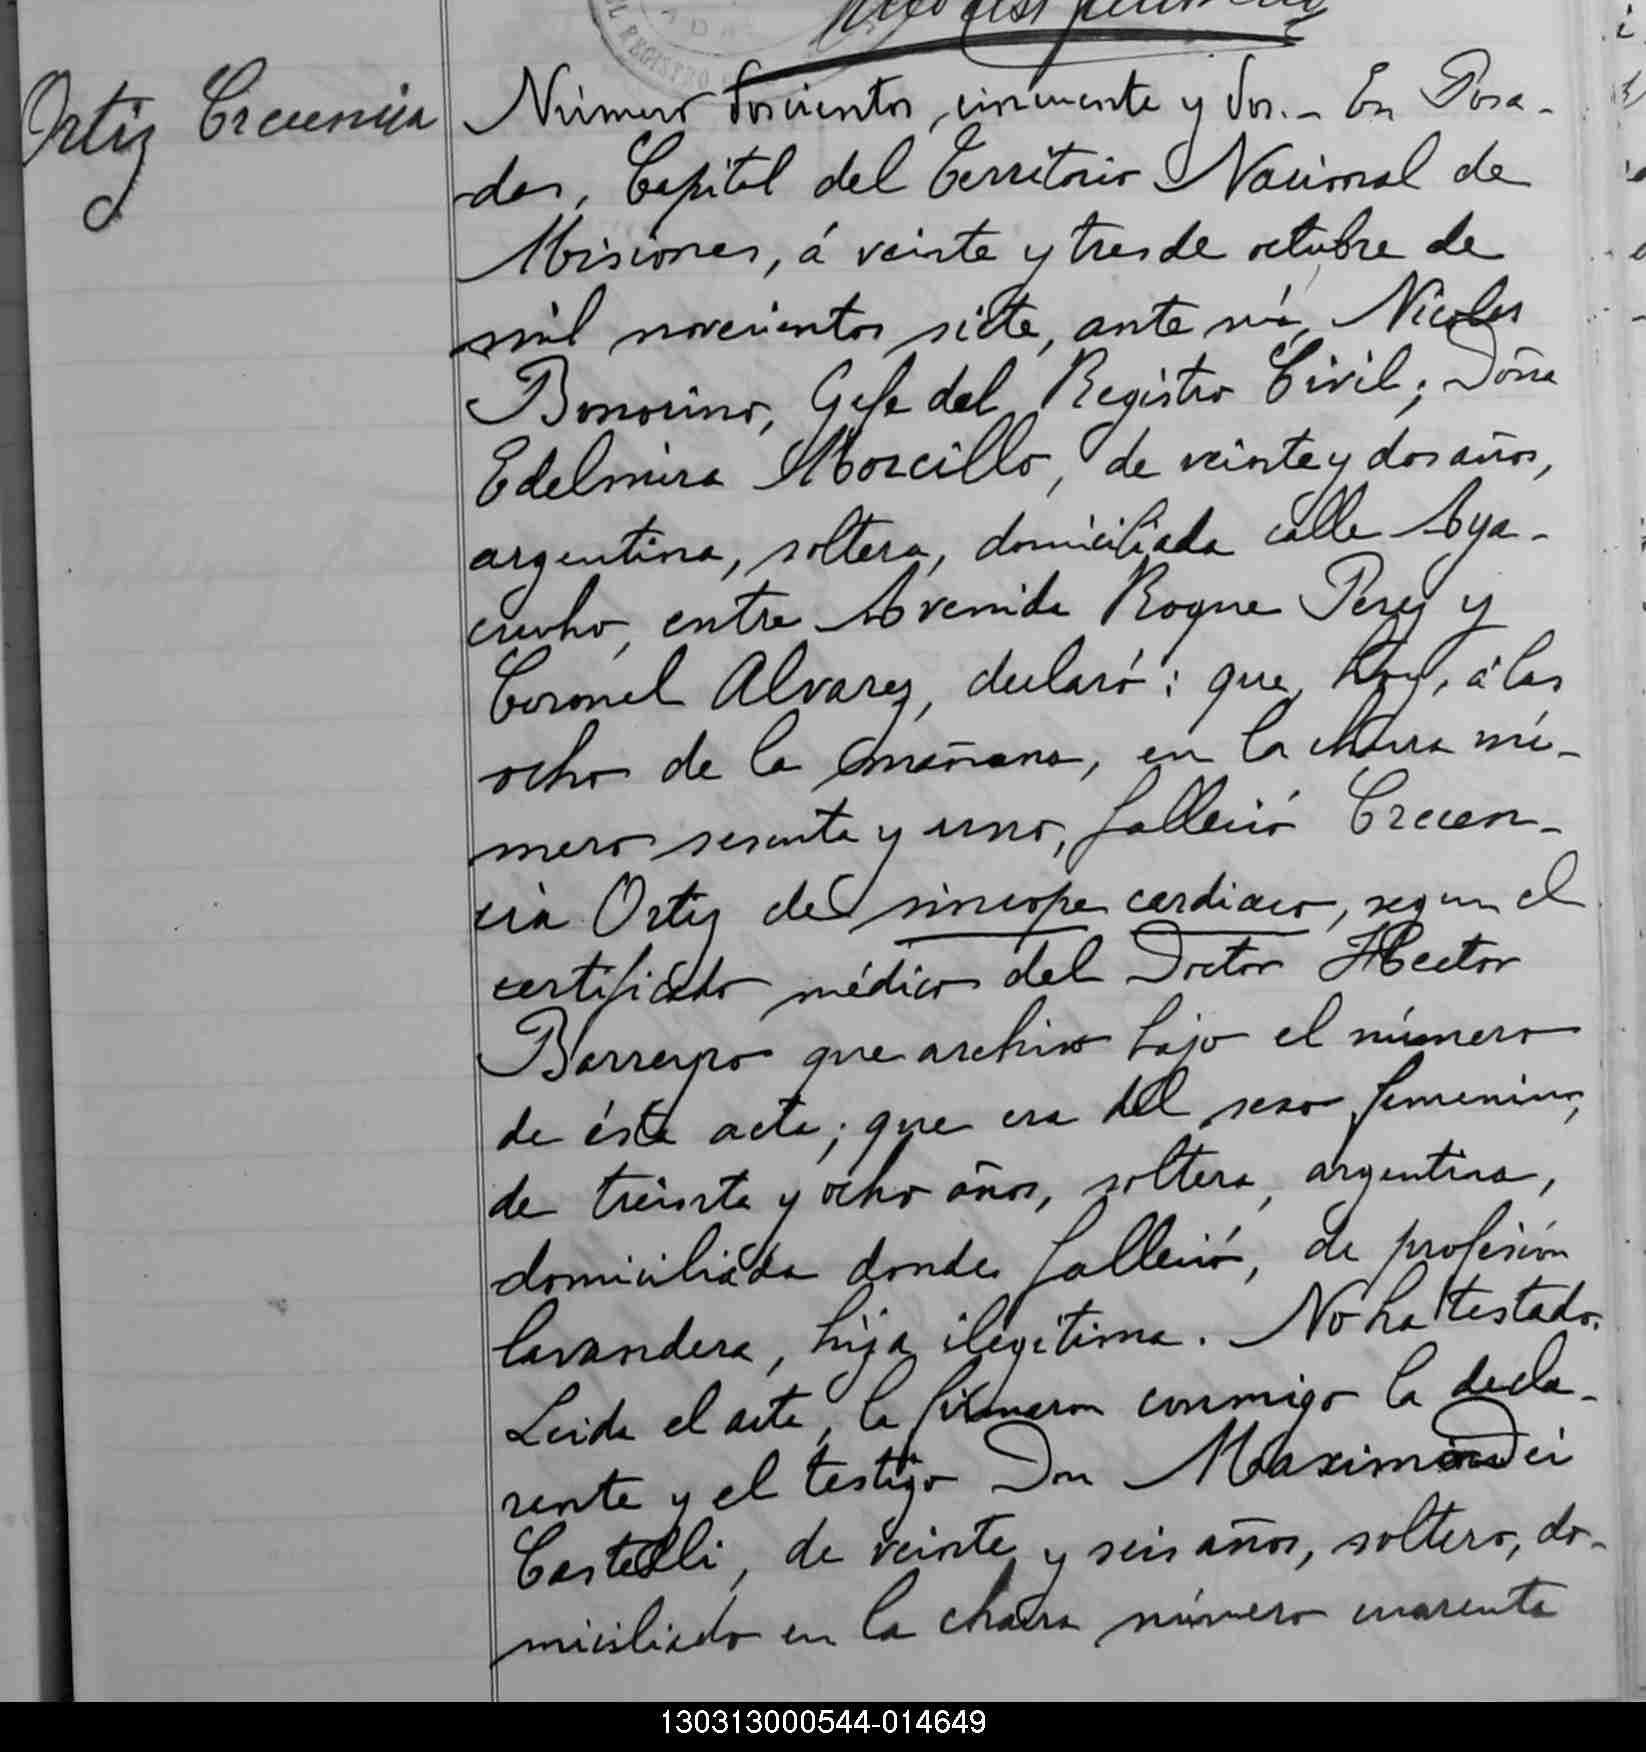 EL REGISTRO
Ortiz Crecencia
Número doscientos, cincuenta y dos.- En Posa-
das, Capital del Territorio Nacional de
Misiones, á veinte y tres de octubre de
mil novecientos siete, ante mí, Nicolas
Bonorino, Gefe del Registro Civil; Doña
Edelmira Morcillo, de veinte y dos años,
argentina, soltera, domiciliada calle Aya-
cucho, entre Avenida Roque Perez y
Coronel Alvarez, declaró: que, hoy, á las
ocho de la mañana, en la chacra nú-
mero sesenta y uno, falleció Crecen-
cia Ortiz de sincope cardiaco, segun el
certificado médico del Doctor Hector
Barreyro que archivo bajo el número
de ésta acta; que era del sexo femenino,
de treinta y ocho años, soltera, argentina,
domiciliada donde falleció, de profesión
lavandera, hija ilegítima. No ha testado.
Leida el acta, la firmaron conmigo la decla-
rante y el testigo Don Maximo Dei
Castelli, de veinte y seis años, soltero, do-
miciliado en la chacra número cuarenta
130313000544-014649